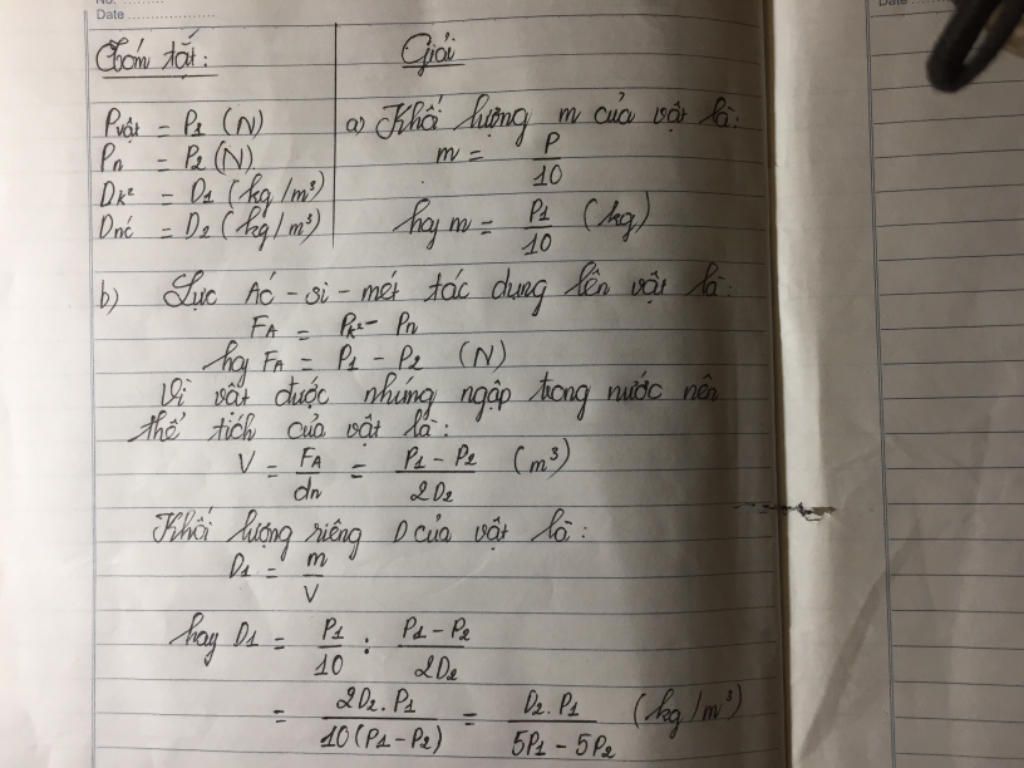 No. ............
Date .....................
Date ............
Tóm tắt:
Giải
Pvật = P1 (N)
Pn = P2 (N)
Dk² = D1 (kg/m³)
Dnć = D2 (kg/m³)
a) Khối lượng m của vật là:
m = P/10
hay m = P1/10 (kg)
b) Lực Ác-si-mét tác dụng lên vật là:
FA = Pk² - Pn
hay FA = P1 - P2 (N)
Vì vật được nhúng ngập trong nước nên
thể tích của vật là:
V = FA/dn = (P1 - P2)/2D2 (m³)
Khối lượng riêng D của vật là:
D1 = m/V
hay D1 = P1/10 : (P1 - P2)/2D2
= 2D2.P1/10(P1-P2) = D2.P1/5P1-5P2 (kg/m³)